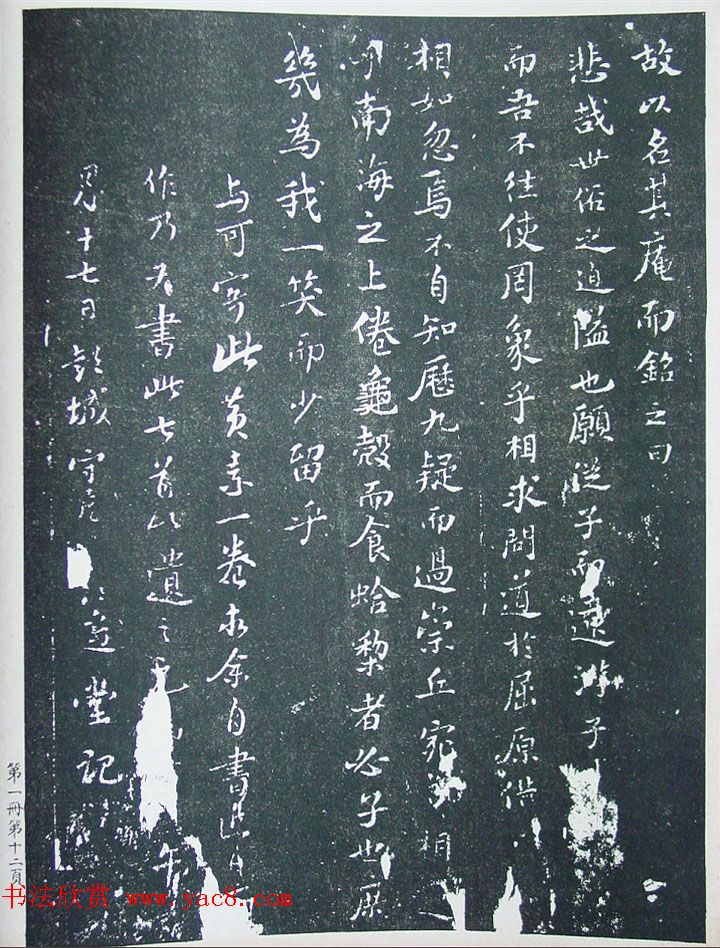 故以名其庵而銘之曰
悲哉世俗之迫隘也願從子而遠游子
而吾不往使罔象乎相求問道於屈原借
相如忽焉不自知歷九疑而過崇丘宛兮相
乎南海之上倦龜殼而食蛤棃者必子也庶
幾為我一笑而少留乎
与可寄此黃素一卷求余自書近日
作乃為書此七首以遺之元 年
月十七日彭城守居 遙堂記
第一冊第十二頁
书法欣赏 www.yac8.com